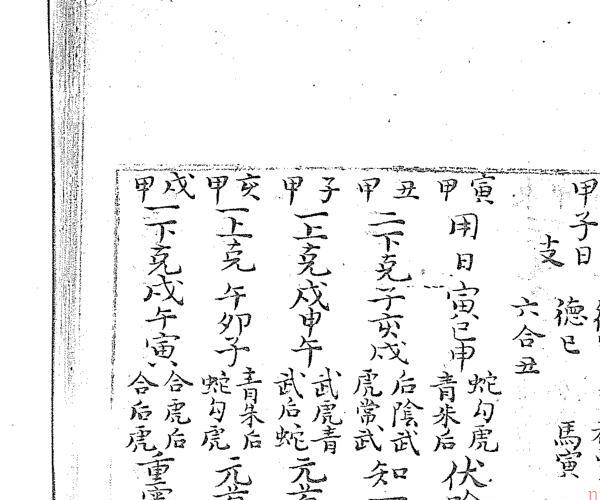 甲子日
支
德巳 馬寅
六合丑
寅甲 用日寅巳申 蛇勾虎 青朱后 伏
丑甲 二下克子亥戌 后陰武 虎常武 知一
子甲 一上克戌申午 武虎青 武后蛇 元首
亥甲 一上克午卯子 青朱后 蛇勾虎 元首
戌甲 一下克戌午寅 合虎后 合后虎 重